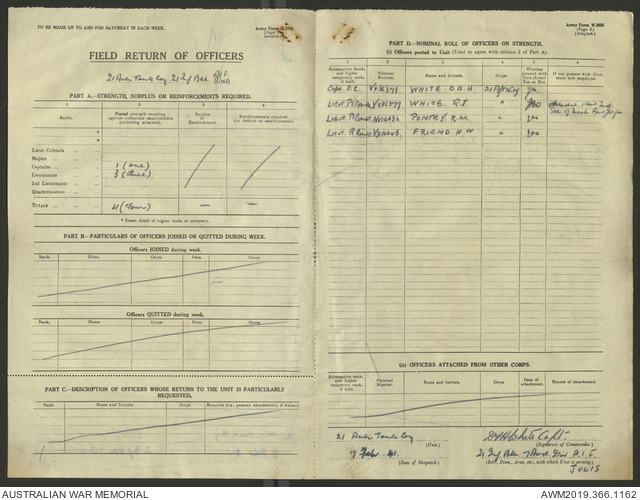 TO BE MADE UP TO AND FOR SATURDAY IN EACH WEEK.
Army Form W.3008.
(Page 1.)
(Adapted.)
FIELD RETURN OF OFFICERS
21 Anti Tank Coy 21 Inf Bde A.I.F.
(Unit)
PART A.—STRENGTH, SURPLUS OR REINFORCEMENTS REQUIRED.
1 2 3 4
Ranks. Posted strength counting against authorized establishment (excluding attached). Surplus to Establishment. Reinforcements required (i.e. deficit on establishment).
Lieut.-Colonels
Majors
Captains 1 (one)
Lieutenants 3 (three)
2nd Lieutenants
Quartermasters
TOTALS 4 (Four) — —
* Insert detail of higher ranks as necessary.
PART B.—PARTICULARS OF OFFICERS JOINED OR QUITTED DURING WEEK.
Officers JOINED during week.
Rank. Name. Corps. Date. Cause.
Officers QUITTED during week.
Rank. Name. Corps. Date. Cause.
PART C.—DESCRIPTION OF OFFICERS WHOSE RETURN TO THE UNIT IS PARTICULARLY REQUESTED.
Rank. Name and Initials. Corps. Remarks (i.e., present whereabouts, if known)
Army Form W.3008.
(Page 2.)
(Adapted.)
PART D.—NOMINAL ROLL OF OFFICERS ON STRENGTH.
(i) Officers posted to Unit (Total to agree with column 2 of Part A).
1 2 3 4 5 6
Substantive Rank, and higher temporary rank, if held. Personal Number. Name and Initials. Corps. Whether present with Unit (Insert Yes or No). If not present with Unit, state how employed.
Capt. O.C. WHITE D.A.H yes.
Lieut. WHITE. R.J "
Lieut. R.W. " yes
Lieut. FRIEND. H.W. " yes
(ii) OFFICERS ATTACHED FROM OTHER CORPS.
Substantive rank, and higher temporary rank, if held. Personal Number. Name and Initials. Corps. Date of attachment. Reason of attachment.
21 Anti Tank Coy
(Unit.)
7 Feb 41.
(Date of Despatch.)
White Capt.
(Signature of Commander.)
21 Inf Bde 7 Aust Div A.I.F.
(Bde., Divn., Area, etc., with which Unit is serving.)
JULIS.
AUSTRALIAN WAR MEMORIAL
AWM2019.366.1162